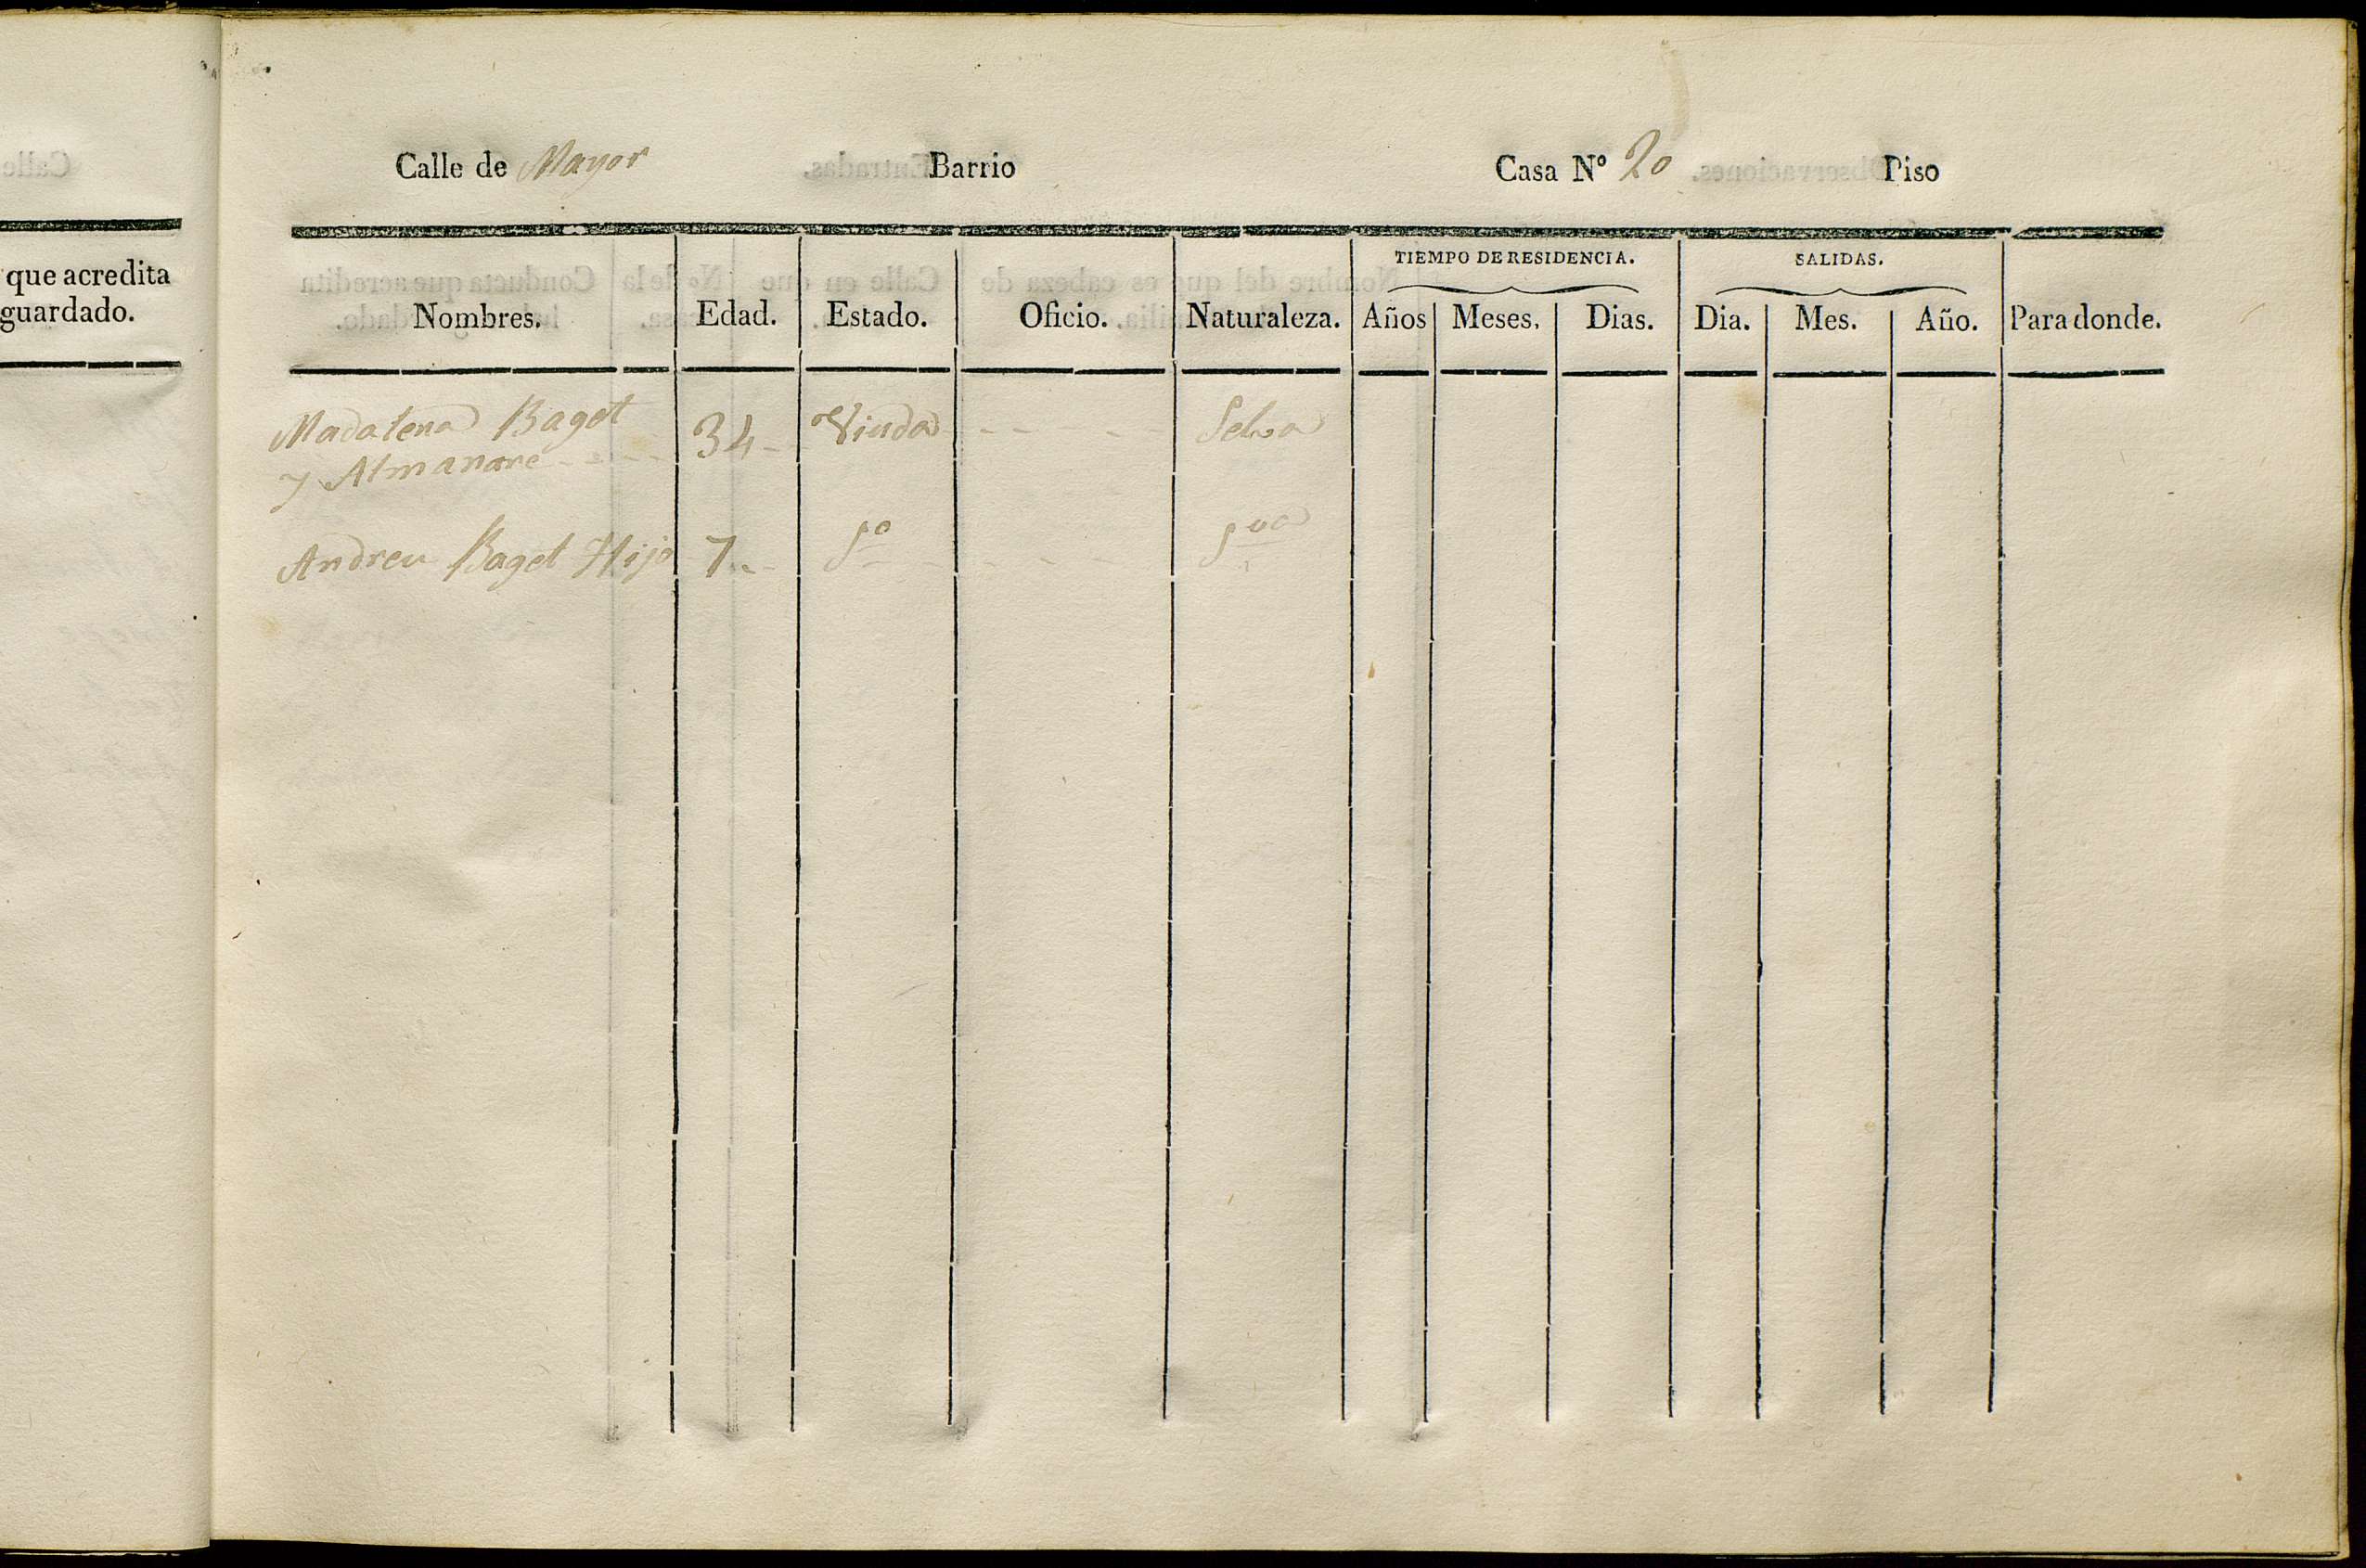 Calle de Mayor Barrio Casa Nº 20 Piso
que acredita
guardado.
TIEMPO DE RESIDENCIA. SALIDAS.
Nombres. Edad. Estado. Oficio. Naturaleza. Años Meses. Dias. Dia. Mes. Año. Para donde.
Madalena Baget 34 Viuda Selva
y Almanare
Andreu Baget Hijo 7